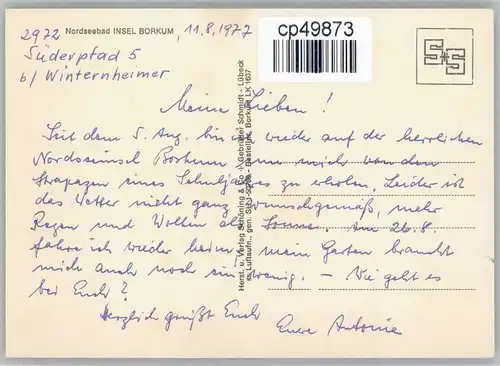 Nordseebad INSEL BORKUM
cp49873
2972
11.8.1977
Süderpfad 5
b/ Winternheimer
S+S
Meine Lieben!
Seit dem 5. Aug. bin ich wieder auf der herrlichen
Nordseeinsel Borkum, um mich von den
Strapazen eines Schuljahres zu erholen. Leider ist
das Wetter nicht ganz wunschgemäß, mehr
Regen und Wolken als Sonne. Am 26.8.
fahre ich wieder heim, mein Garten braucht
mich auch noch ein wenig. – Wie geht es
bei Euch?
Herzlich grüßt Euch
Eure Antonie
Herst. u. Verlag Schöning & Co + Gebrüder Schmidt - Lübeck
Luftaufn.
Borkum LK 1637